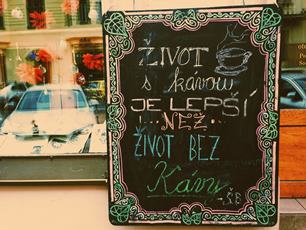 ŽIVOT
s kávou
JE LEPŠÍ
!... NEŽ...
ŽIVOT BEZ
Kávy
-Š.B